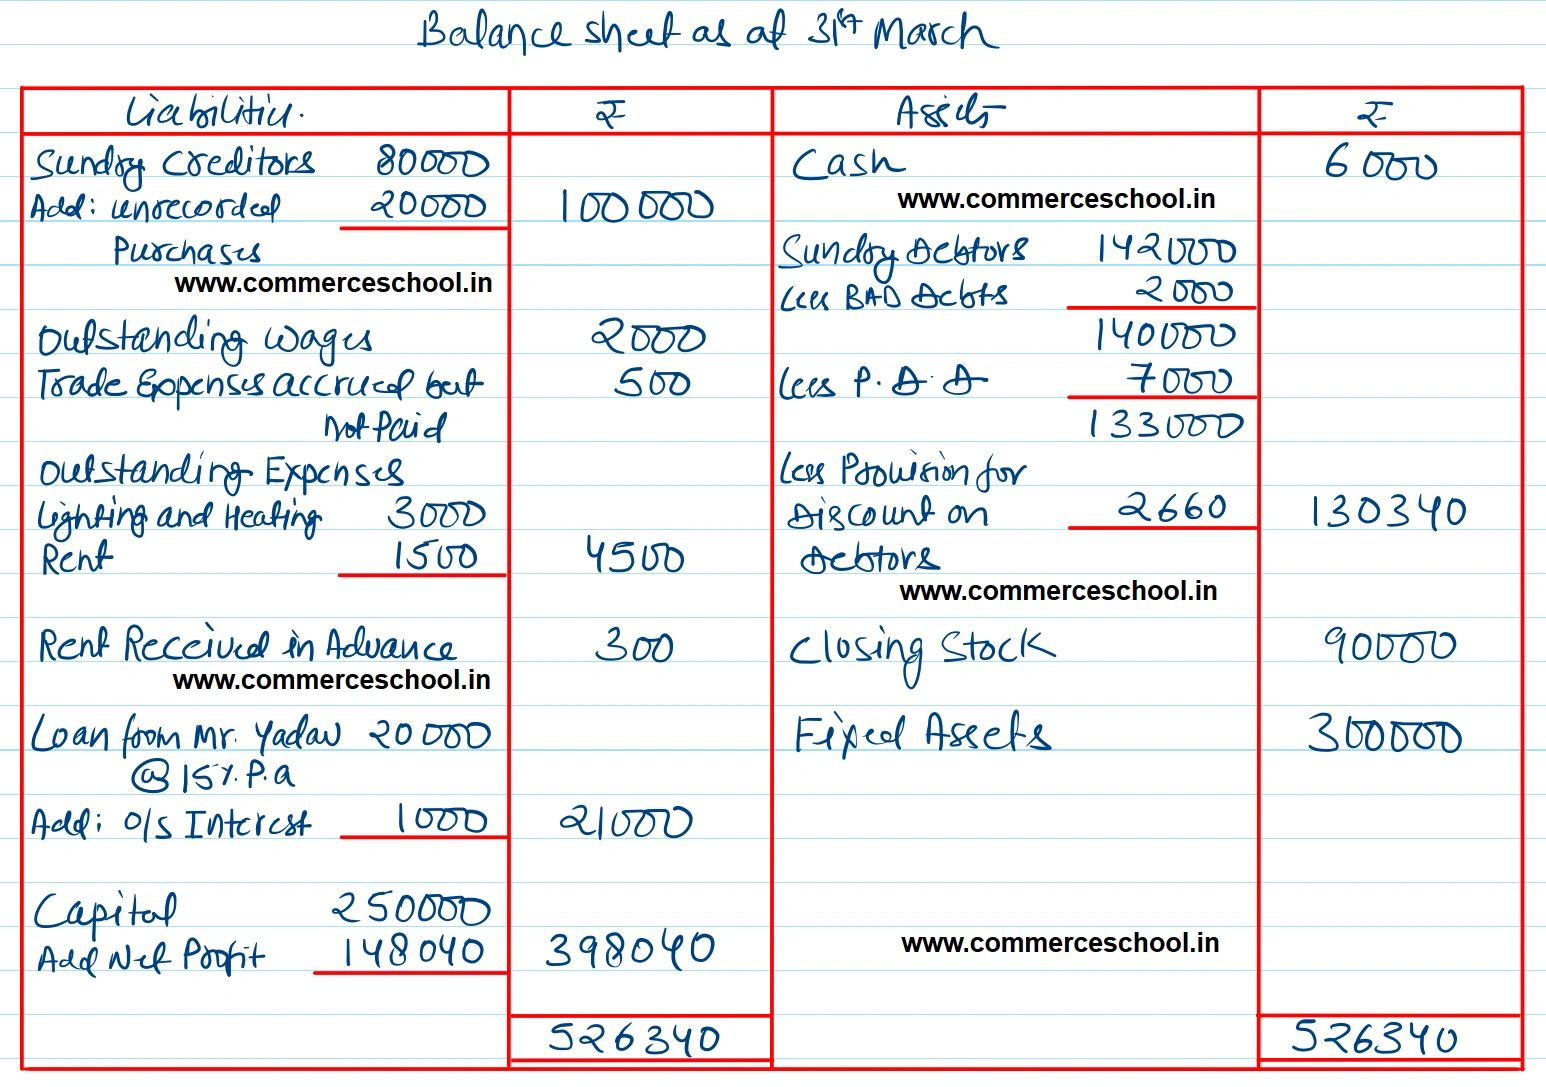 Balance sheet as at 31st March
Liabilities. ₹ Assets ₹
Sundry Creditors 80000 Cash 6000
Add: unrecorded 20000 100000 www.commerceschool.in
Purchases Sundry Debtors 142000
www.commerceschool.in Less BAD Debts 2000
Outstanding Wages 2000 140000
Trade Expenses accrued but 500 Less P.D.D 7000
Not Paid 133000
Outstanding Expenses Less Provision for
Lighting and Heating 3000 Discount on 2660 130340
Rent 1500 4500 Debtors
www.commerceschool.in
Rent Received in Advance 300 Closing Stock 90000
www.commerceschool.in
Loan from Mr. Yadav 20000 Fixed Assets 300000
@ 15%. P.a
Add: o/s Interest 1000 21000
Capital 250000
Add Net Profit 148040 398040 www.commerceschool.in
526340 526340